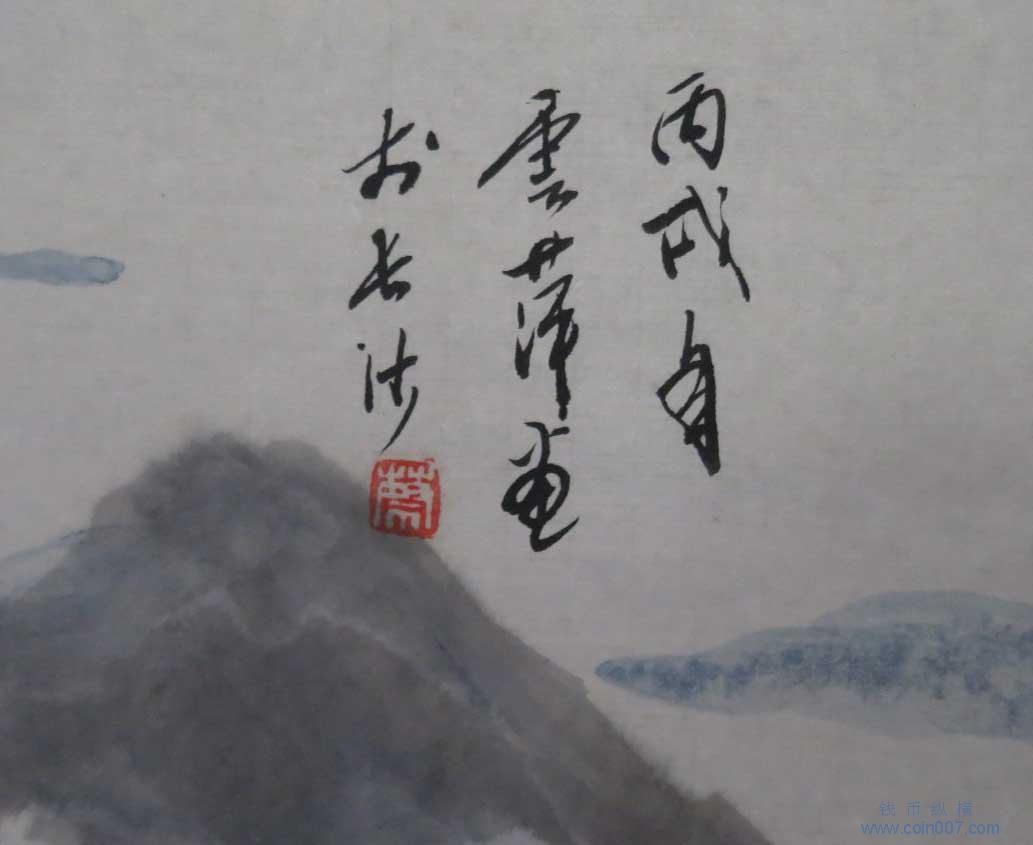 丙戌
雲萍畫
於長沙
蔡
钱币纵横
www.coin007.com